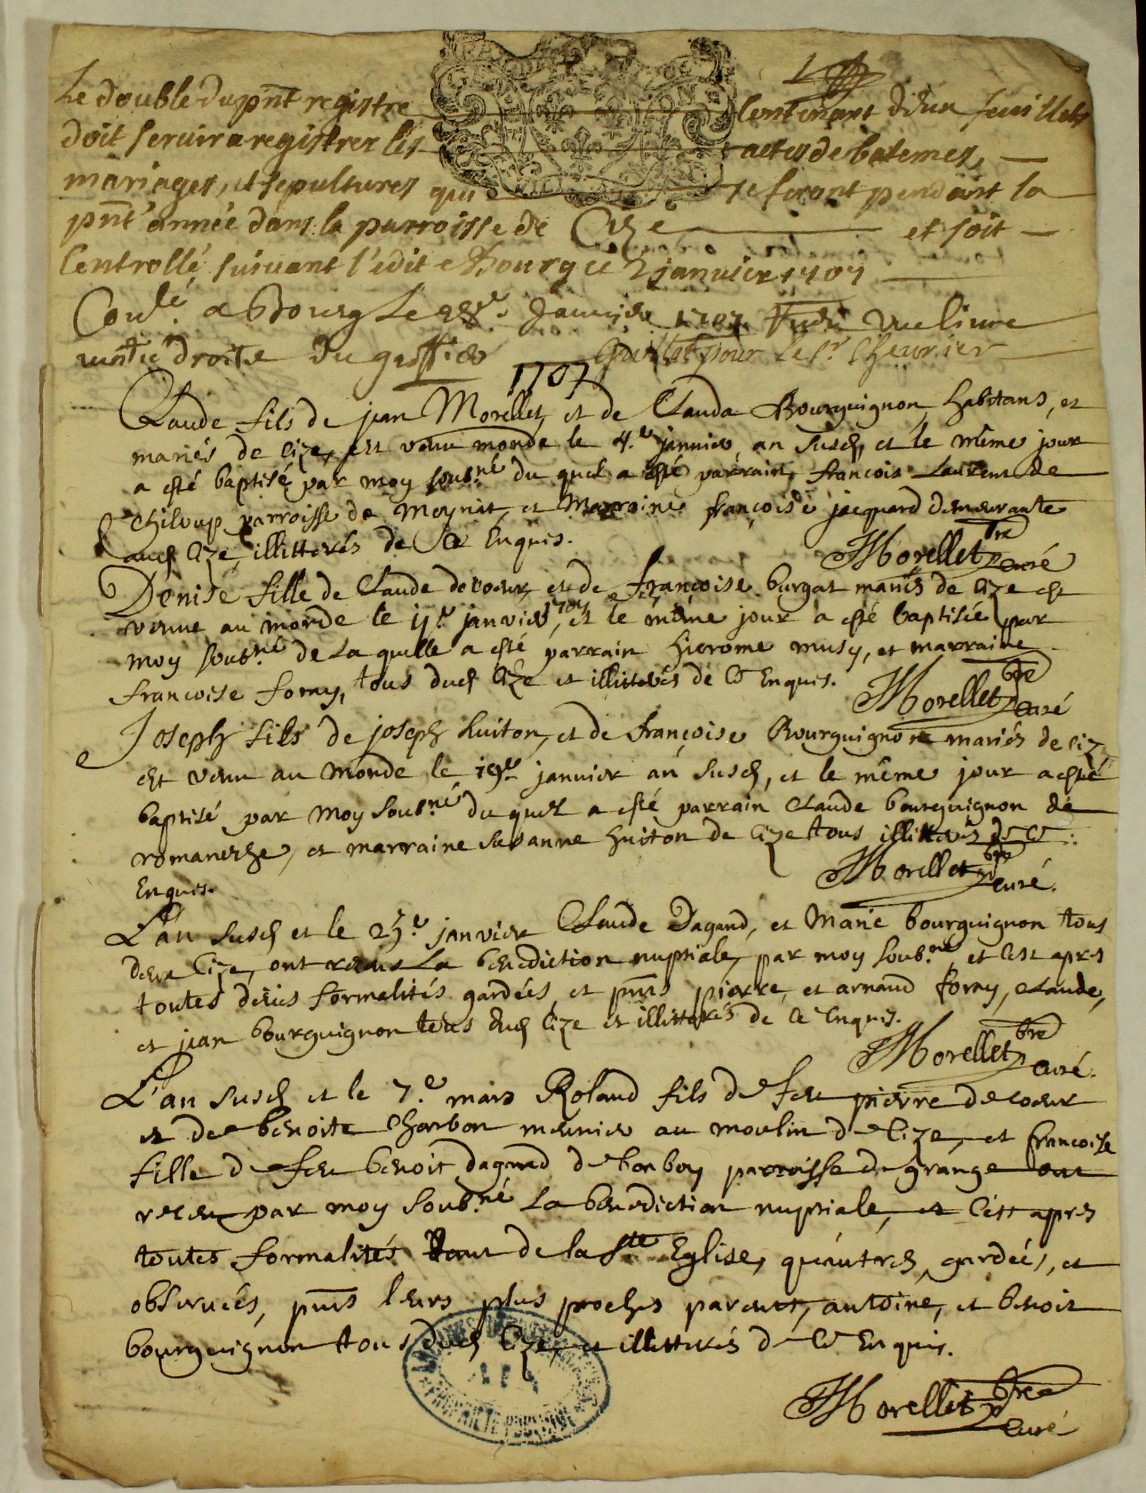 Le double du pnt registre contenant dix un feuillets
doit servir a registrer les actes de batemes,
mariages, et sepultures qui se feront pendant la
pnt année dans la parroisse de Cize et soit
Controllé suivant l'edit a Bourg ce 2 janvier 1707
Conlé. a Bourg Le janvier 1707 une livre
droits du greffier pour le Sr Chevrier
1707
Claude fils de jean Morellet, et de Clauda Bourguignon habitans, et
mariés de Cize, est venu monde le 4.e janvier, an susd, et le même jour
a esté baptisé par moy soubné du quel a esté parrain, francois Laurent de
Chiloup parroisse de Meynat, et Marraine françoise jacquard demeurante
aud Cize, illitterés de Ce Enquis.
JMorellet ptre curé
Denise fille de Claude decoeur, et de françoise burgat mariés de Cize est
venue au monde le 11e janvier 1707, et le même jour a esté baptisée par
moy soubné de La quelle a esté parrain hierome musy, et marraine
francoise foray, tous dud Cize et illitterés de Ce Enquis.
JMorellet ptre curé
Joseph fils de joseph huiton, et de françoise Bourguignon mariés de Cize
est venu au monde le 19e janvier an susd, et le même jour a esté
baptisé par moy soubné du quel a esté parrain Claude bourguignon de
romaneche, et marraine susanne huiton de Cize tous illitterés de ce
Enquis.
JMorellet ptre curé.
L'an susd et le 23.e janvier Claude Dagand, et Marie bourguignon tous
deux Cize, ont receu La benediction nuptiale, par moy soubné, et C'est apres
toutes deües formalités gardées, et pnts pierre, et arnaud foray, Claude,
et jean bourguignon tous dud Cize et illitterés de Ce Enquis.
JMorellet ptre curé.
L'an susd et le 7.e mars Roland fils de feu pierre decoeur
et de benoite Charbon meunier au moulin de Cize, et francoise
fille de feu benoit dagand de parroisse de grange ont
receu par moy soubné La benediction nuptiale, et C'est apres
toutes formalités tant de la ste Eglise, qu'autres, gardées, et
observées, pnts leurs plus proches parents, antoine, et benoit
bourguignon tous dud Cize, et illitterés de Ce Enquis.
JMorellet ptre
curé